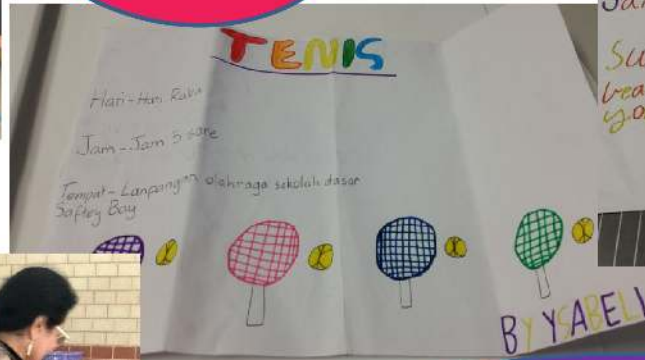 TENIS
Hari-Hari Rabu
Jam-Jam 5 sore
Tempat-Lanpangan olahraga sekolah dasar
Saftey Bay
BY YSABEL
Su